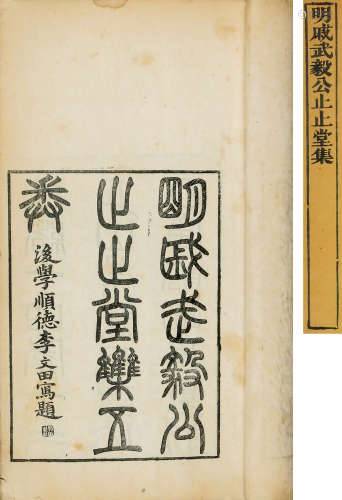 明戚武毅公止止堂集
明戚武毅公
止止堂集五
卷
後學順德李文田寫題